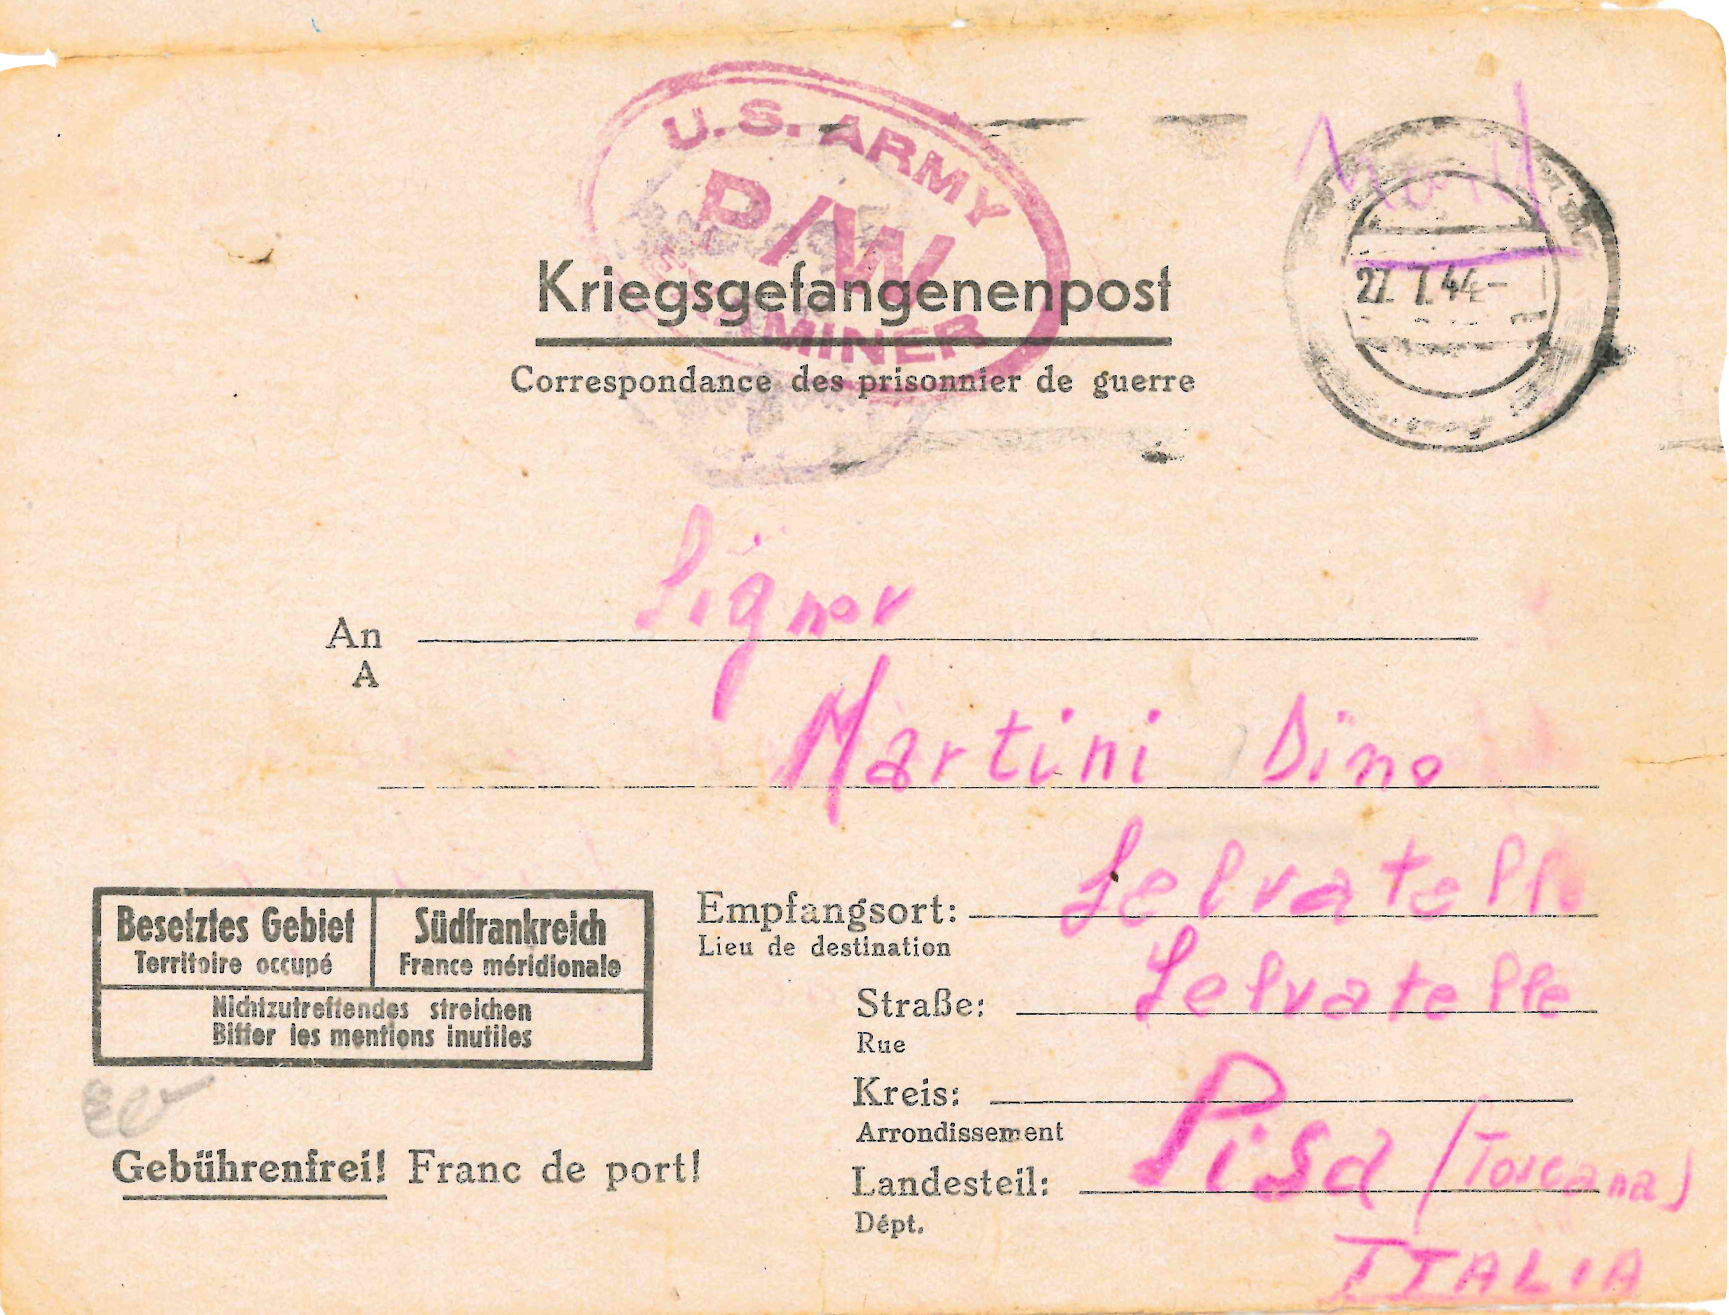 U.S. ARMY
P/W
EXAMINER
Kriegsgefangenenpost
Correspondance des prisonnier de guerre
Nord
27.7.44-
An Signor
A
Martini Dino
Besetztes Gebiet
Territoire occupé
Südfrankreich
France méridionale
Nichtzutreffendes streichen
Biffer les mentions inutiles
Empfangsort: Selvatelle
Lieu de destination
Straße: Selvatelle
Rue
Kreis:
Arrondissement
Landesteil: Pisa (Toscana)
Dépt.
ITALIA
Gebührenfrei! Franc de port!